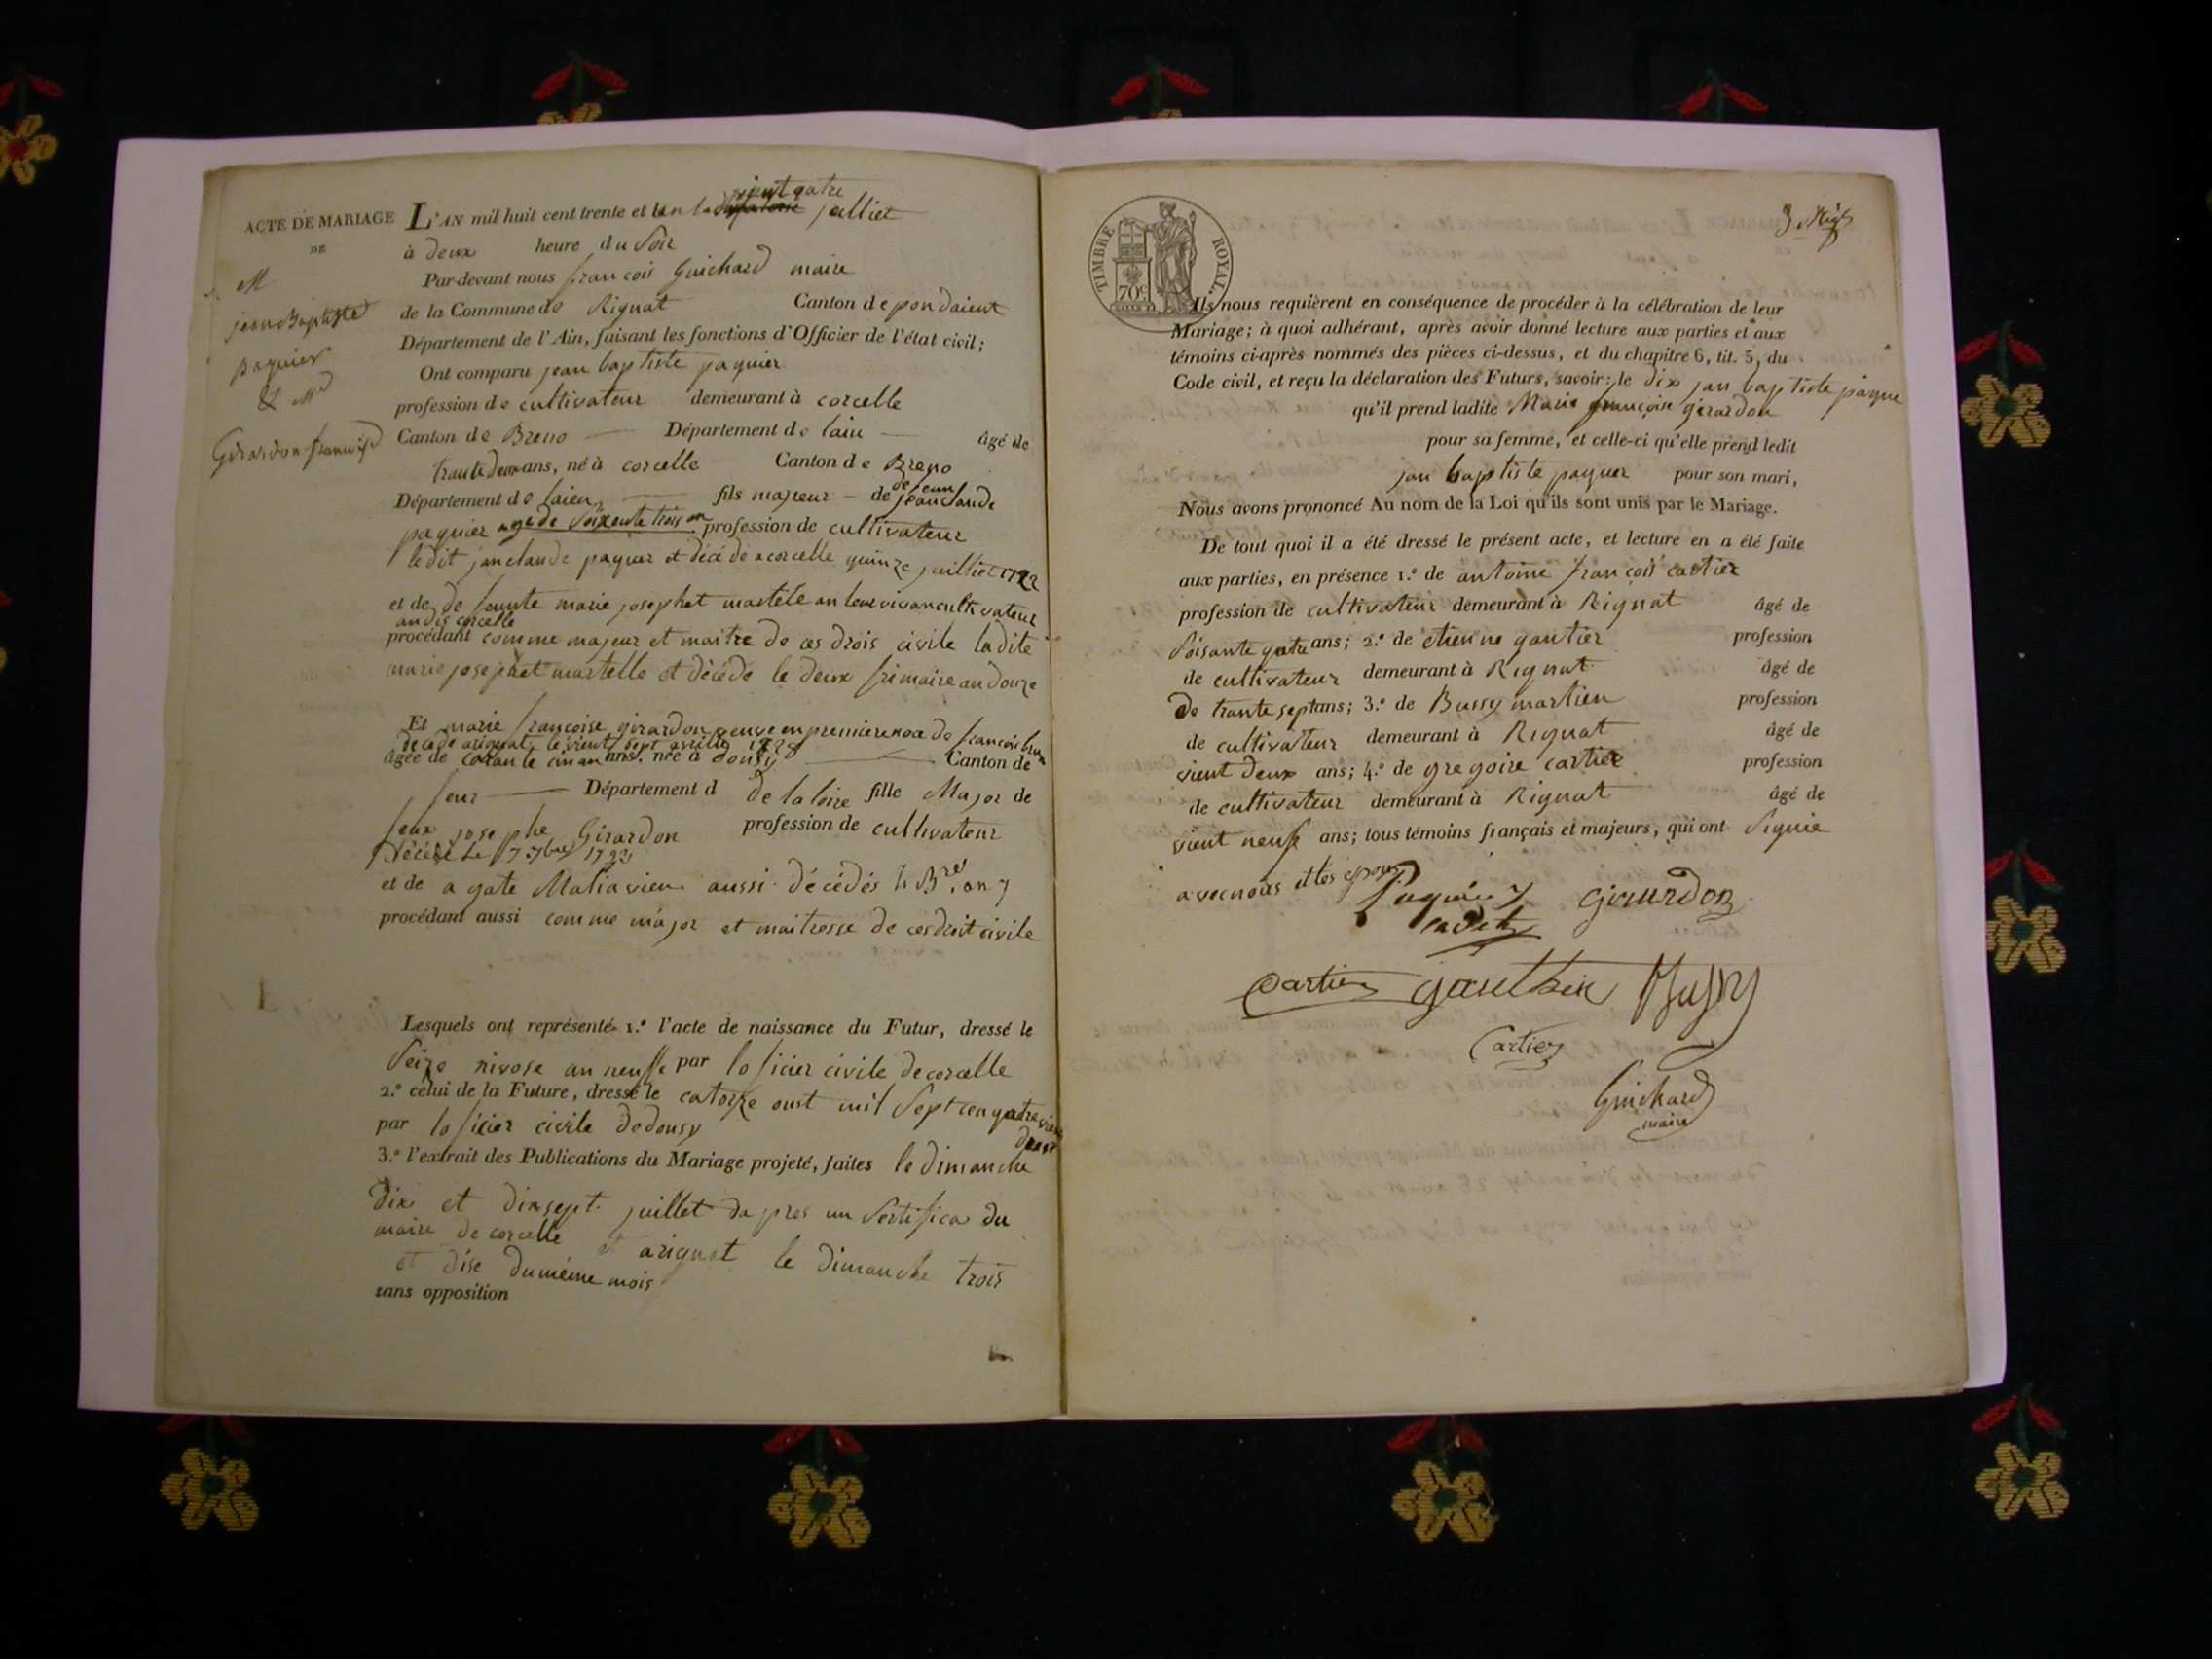 ACTE DE MARIAGE
DE
M
jean Baptiste
paquier
& Md
Girardon francoise
L'AN mil huit cent trente et un le vient catre julliet
à deux heure du soir
Par-devant nous francois Guichard maire
de la Commune de Rignat Canton de pondaient
Département de l'Ain, faisant les fonctions d'Officier de l'état civil;
Ont comparu jean baptiste paquier
profession de cultivateur demeurant à corcelle
Canton de Breno Département de lain âgé de
trante deux ans, né à corcelle Canton de Breno
Département de laien fils majeur de feu jean claude
paquier age de soixente trois an profession de cultivateur
ledit jan claude paquer et décédé a corcelle quinze juilliet 1792
et de de feunte marie josephet martele an leur vivan cultivateur
audis corcelle
procédant comme majeur et maitre de ces drois civile ladite
marie josephet martelle et décédé le deux frimaire an douze
Et marie françoise girardon veuve en premiere noce de francois
décédé arignat le vient sept avrille 1828
âgée de carante cin an ans, née à donsy Canton de
feur Département d de la loire fille Major de
feux josephe Girardon profession de cultivateur
décédé le 7 7bre 1793
et de agate Matiavieu aussi décédés le Bre an 7
procédant aussi comme major et maitresse de ces droit civile
Lesquels ont représenté 1.° l'acte de naissance du Futur, dressé le
seize nivose an neuffe par loficier civile de corcelle
2.° celui de la Future, dressé le catorze oust mil sept cen quatre vien
par loficier civile dedonsy
3.° l'extrait des Publications du Mariage projeté, faites le dimanche
dix et dix sept juillet da pres un sertifica du
maire de corcelle et arignat le dimanche trois
et dise du même mois
sans opposition
TIMBRE ROYAL
70c
Ils nous requièrent en conséquence de procéder à la célébration de leur
Mariage; à quoi adhérant, après avoir donné lecture aux parties et aux
témoins ci-après nommés des pièces ci-dessus, et du chapitre 6, tit. 5, du
Code civil, et reçu la déclaration des Futurs, savoir: le dix jan baptiste paque
qu'il prend ladite Marie françoise girardon
pour sa femme, et celle-ci qu'elle prend ledit
jan baptiste paquer pour son mari,
Nous avons prononcé Au nom de la Loi qu'ils sont unis par le Mariage.
De tout quoi il a été dressé le présent acte, et lecture en a été faite
aux parties, en présence 1.° de antoine françois cartier
profession de cultivateur demeurant à Rignat âgé de
soisante gatre ans; 2.° de etienne gautier profession
de cultivateur demeurant à Rignat âgé de
de trante sept ans; 3.° de Bussy martien profession
de cultivateur demeurant à Rignat âgé de
vient deux ans; 4.° de gregoire cartier profession
de cultivateur demeurant à Rignat âgé de
vient neuf ans; tous témoins français et majeurs, qui ont signie
avec nous et les epoux
Paquier Girardon
cadet
Cartier gauthier Bussy
Cartier
Guichard
maire